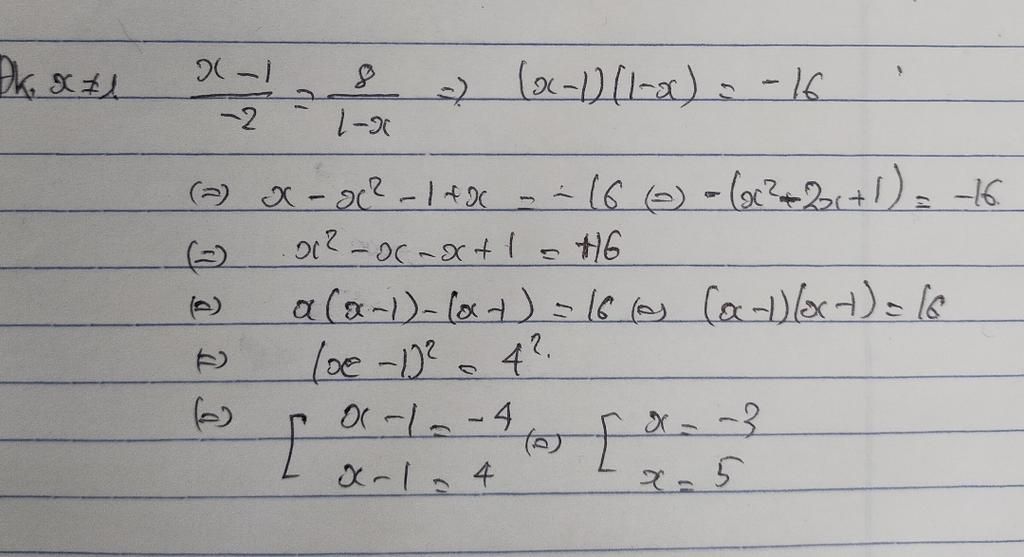 Đk: x ≠ 1 (x-1)/(-2) = 8/(1-x) => (x-1)(1-x) = -16
(=) x - x² - 1 + x = -16 (=) -(x² - 2x + 1) = -16
(=) x² - x - x + 1 = +16
(=) x(x-1) - (x-1) = 16 (=) (x-1)(x-1) = 16
(=) (x-1)² = 4².
(=) [ x-1 = -4 (=) [ x = -3
x-1 = 4 x = 5